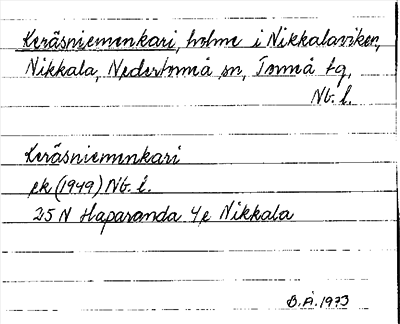 Keräsniemenkari, holme i Nikkalaviken,
Nikkala, Nedertorneå sn, Torneå tg,
Nb. l.
Keräsniemenkari
ek (1949) Nb. l.
25 N Haparanda 4e Nikkala
B.Å. 1973